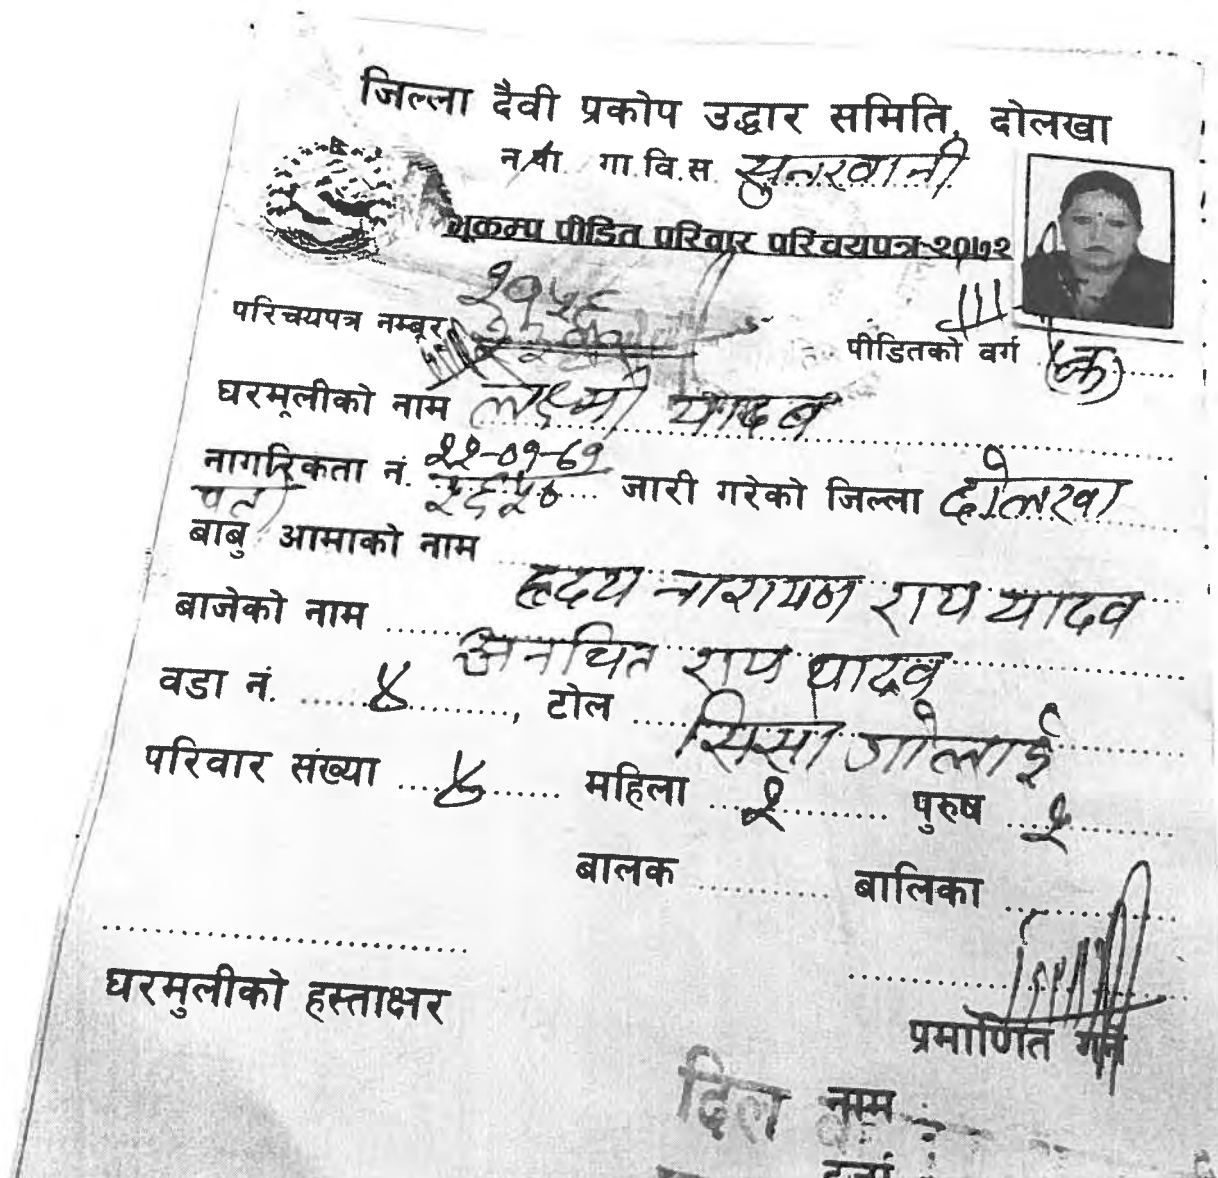 जिल्ला दैवी प्रकोप उद्धार समिति, दोलखा
न.पा. गा.वि.स. सुनखानी
भूकम्प पीडित परिवार परिचयपत्र-२०७२
परिचयपत्र नम्बर
पीडितको वर्ग (क)
घरमूलीको नाम लक्ष्मी यादव
नागरिकता नं. २२-०१-६९ जारी गरेको जिल्ला दोलखा
पती
बाबु/आमाको नाम हृदय नारायण राय यादव
बाजेको नाम अनचित राय यादव
वडा नं. ४, टोल
परिवार संख्या ४ महिला २ पुरुष २
बालक बालिका
घरमुलीको हस्ताक्षर
प्रमाणित गर्ने
दिल नाम :
दर्जा :